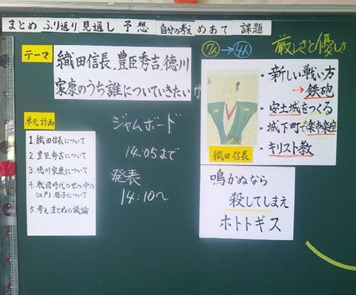 まとめ ふり返り 見通し 予想 自分の考え めあて 課題
テーマ
織田信長、豊臣秀吉、徳川
家康のうち誰についていきたいか
厳しさと優し
・新しい戦い方
→鉄砲
・安土城をつくる
・城下町で楽市楽座
・キリスト教
織田信長
単元計画
1.織田信長について
2.豊臣秀吉について
3.徳川家康について
4.戦国時代の世の中の
(江戸)様子について
5.考えまとめ・議論
ジャムボード
14:05まで
発表
14:10〜
鳴かぬなら
殺してしまえ
ホトトギス